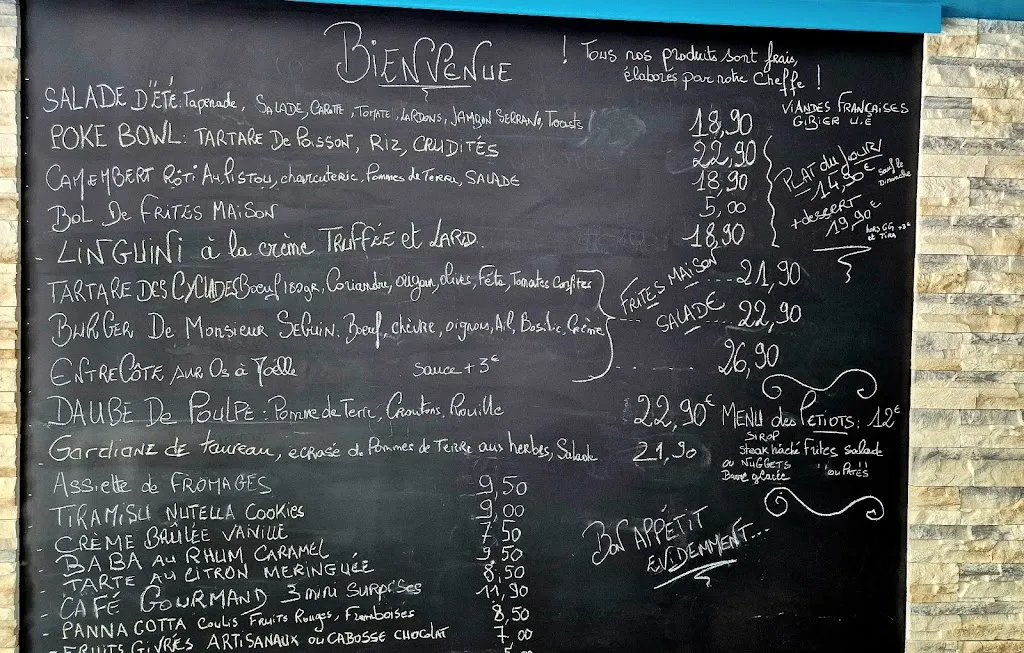 BIENVENUE
! Tous nos produits sont frais,
élaborés par notre Cheffe !
VIANDES FRANÇAISES
GIBIER U.E
SALADE D'ÉTÉ: Tapenade, SALADE, CAROTTE, TOMATE, LARDONS, JAMBON SERRANO, Toasts 18,90
POKE BOWL: TARTARE De Poisson, RIZ, CRUDITÉS 22,90
CAMEMBERT RÔTI Au PISTOU, charcuterie, Pommes de Terre, SALADE 18,90
BOL De FRITES MAISON 5,00
- LINGUINI à la crème TRUFFÉE et LARD. 18,90
PLAT du JOUR
14,90€ sauf le
Dimanche
+ dessert
19,90€
hors GG +2€
et TIRA
TARTARE DES CYCLADES Boeuf 180gr, Coriandre, origan, olives, Féta, Tomates Confites 21,90
BURGER De Monsieur SEGUIN. Boeuf, chèvre, oignons, Ail, Basilic, Crème 22,90
ENTRECÔTE sur Os à Joëlle sauce + 3€ 26,90
FRITES MAISON
SALADE
DAUBE De POULPE: Pomme de Terre, Croutons, Rouille 22,90€
- Gardiane de taureau, écrasé de Pommes de Terre aux herbes, Salade 21,90
MENU des PETIOTS: 12€
SIROP
Steak haché Frites salade
ou NUGGETS " ou PATES
Barre glacée
- ASSIETTE de FROMAGES 9,50
- TIRAMISU NUTELLA COOKIES 9,00
- CRÈME BRÛLÉE VANILLE 7,50
- BABA AU RHUM CARAMEL 9,50
- TARTE AU CITRON MERINGUÉE 8,50
- CAFÉ GOURMAND 3 mini SURPRISES 11,90
- PANNA COTTA Coulis FRUITS ROUGES, Framboises 8,50
- FRUITS GIVRÉS ARTISANAUX ou CABOSSE CHOCOLAT 7,00
BON APPÉTIT
EVIDEMMENT...